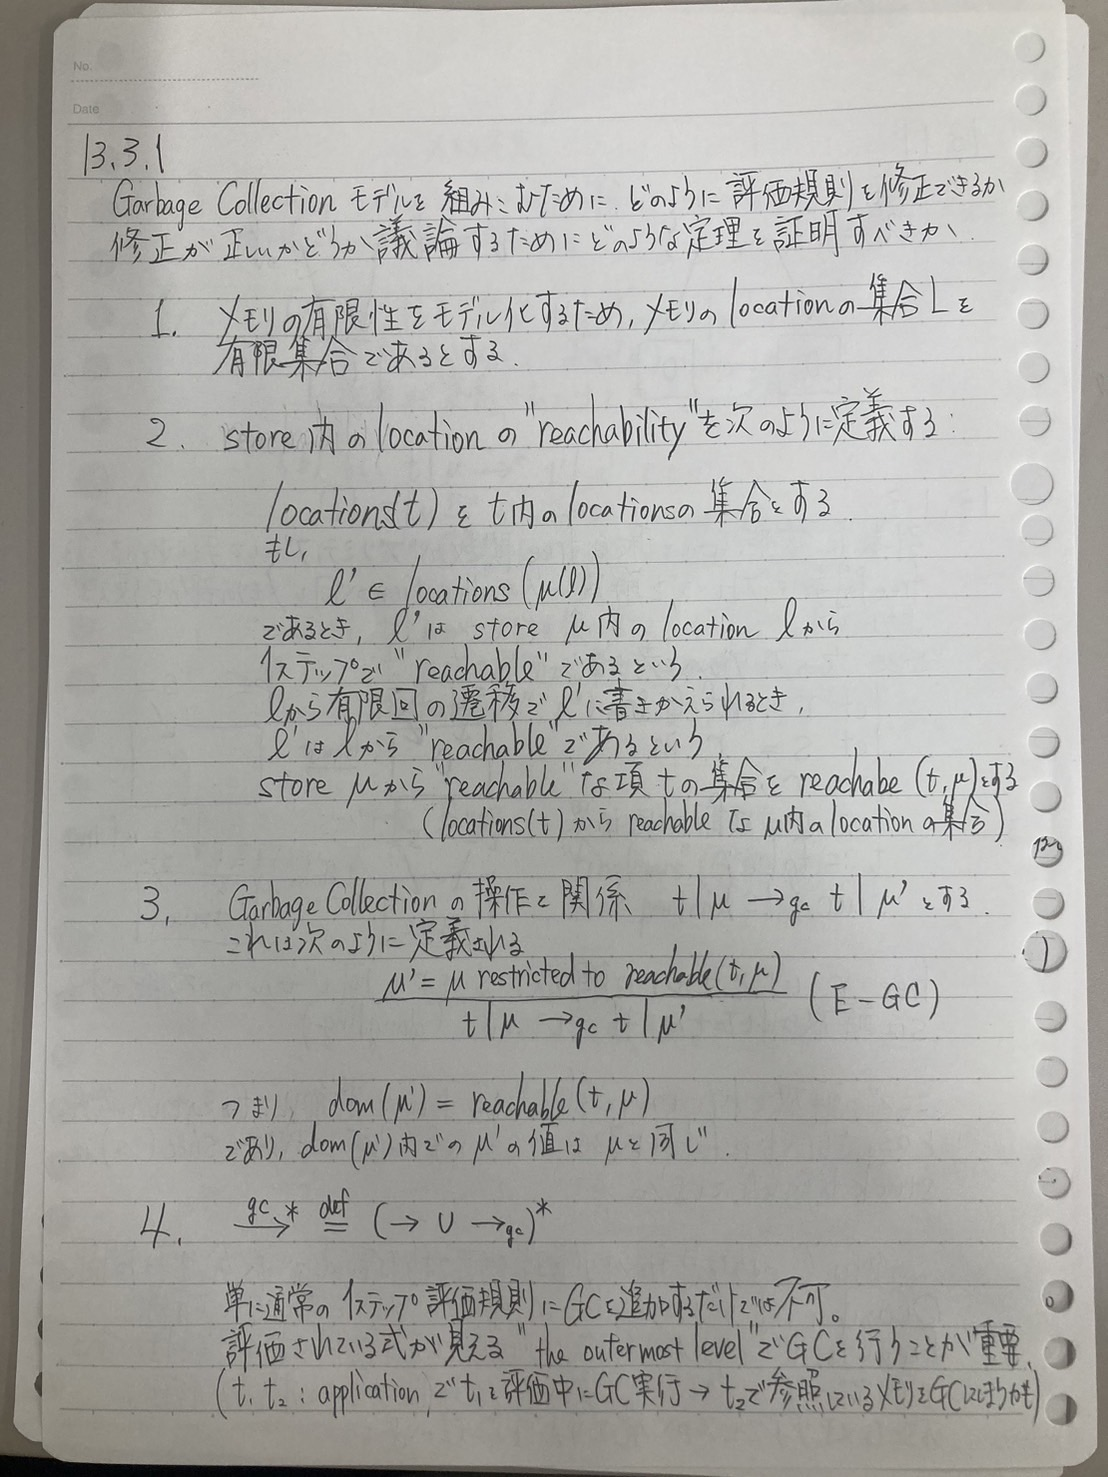 No.
Date
13.3.1
Garbage Collection モデルを組みこむために、どのように評価規則を修正できるか
修正が正しいかどうか議論するためにどのような定理を証明すべきか.
1. メモリの有限性をモデル化するため, メモリのlocationの集合Lを
有限集合であるとする.
2. store内のlocationの"reachability"を次のように定義する:
locations(t)をt内のlocationsの集合とする.
もし,
l' ∈ locations (μ(l))
であるとき, l'は store μ内のlocation lから
1ステップで"reachable"であるという.
lから有限回の遷移でl'に書きかえられるとき,
l'はlから"reachable"であるという.
store μから"reachable"な項tの集合を reachabe (t,μ)とする
(locations(t)からreachableなμ内のlocationの集合)
3. Garbage Collectionの操作を関係 t|μ →gc t|μ' とする.
これは次のように定義される
μ' = μ restricted to reachable(t,μ)
t|μ →gc t|μ' (E-GC)
つまり, dom(μ') = reachable(t,μ)
であり, dom(μ')内でのμ'の値はμと同じ.
4. gc→* def= (→ ∪ →gc)*
単に通常の1ステップ評価規則にGCを追加するだけでは不可。
評価されている式が見える"the outermost level"でGCを行うことが重要.
(t1 t2 : application でt1を評価中にGC実行→t2で参照しているメモリをGCにしまうかも)